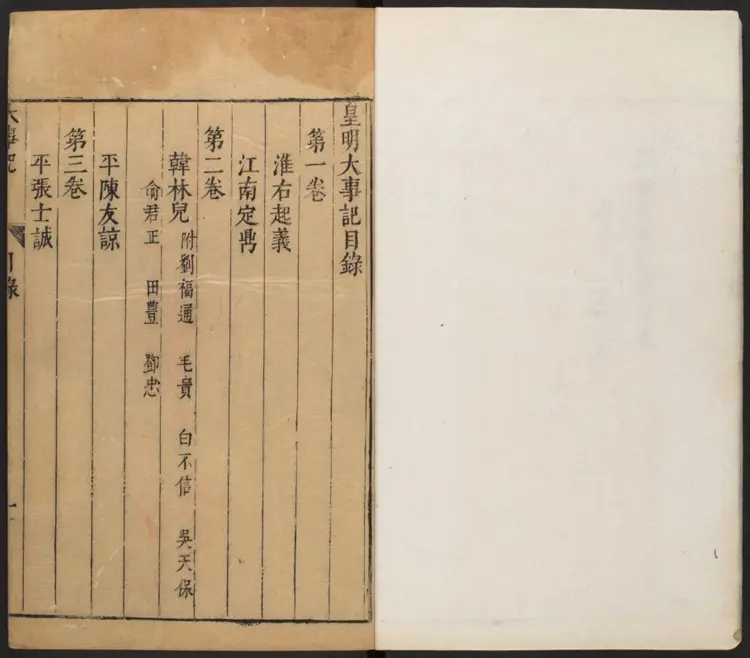 皇明大事記目錄
第一卷
淮右起義
江南定鼎
第二卷
韓林兒 附劉福通 毛貴 白不信 吳天保
俞君正 田豐 鄧忠
平陳友諒
第三卷
平張士誠
大事記 目錄 一